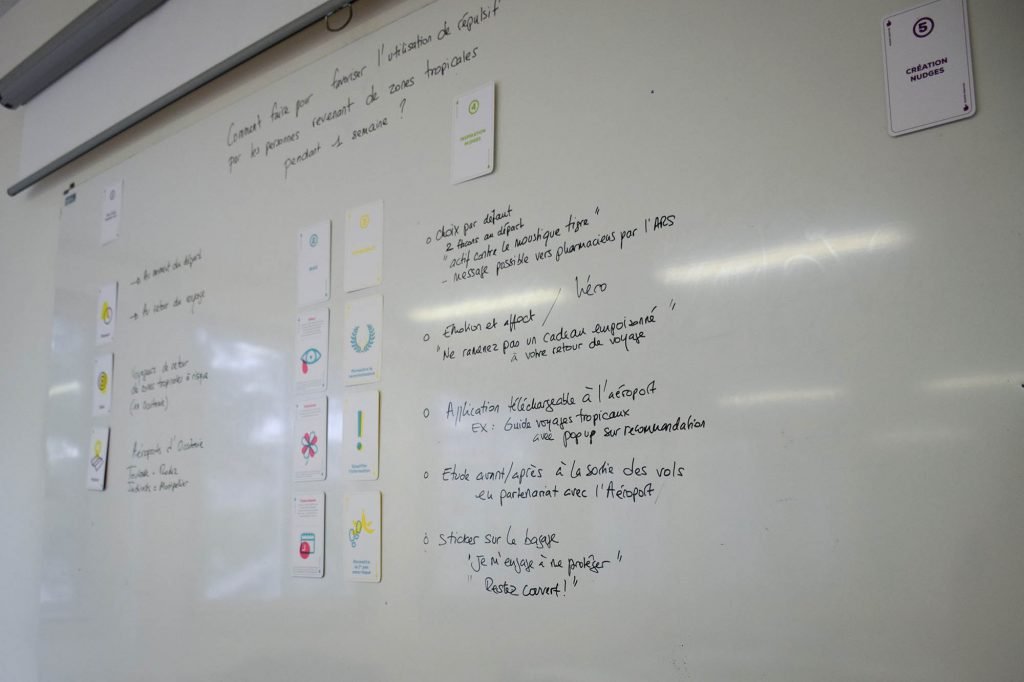 Comment faire pour favoriser l'utilisation de répulsif
par les personnes revenant de zones tropicales
pendant 1 semaine ?
5
CRÉATION
NUDGES
4
INSPIRATION
NUDGES
→ Au moment du départ
→ Au retour du voyage
Voyageurs de retour
de zones tropicales à risque
(en Occitanie)
Aéroports d'Occitanie
Toulouse - Rodez
Montpellier
o Choix par défaut
2 flacons au départ
"actif contre le moustique tigre"
- message possible vers pharmaciens par l'ARS
o Emotion et affect / héro
"Ne ramenez pas un cadeau empoisonné"
à votre retour de voyage
o Application téléchargeable à l'aéroport
EX : Guide voyages tropicaux
avec pop up sur recommandation
o Etude avant/après à la sortie des vols
en partenariat avec l'Aéroport
o Sticker sur le bagage
"Je m'engage à me protéger"
"Restez couvert !"